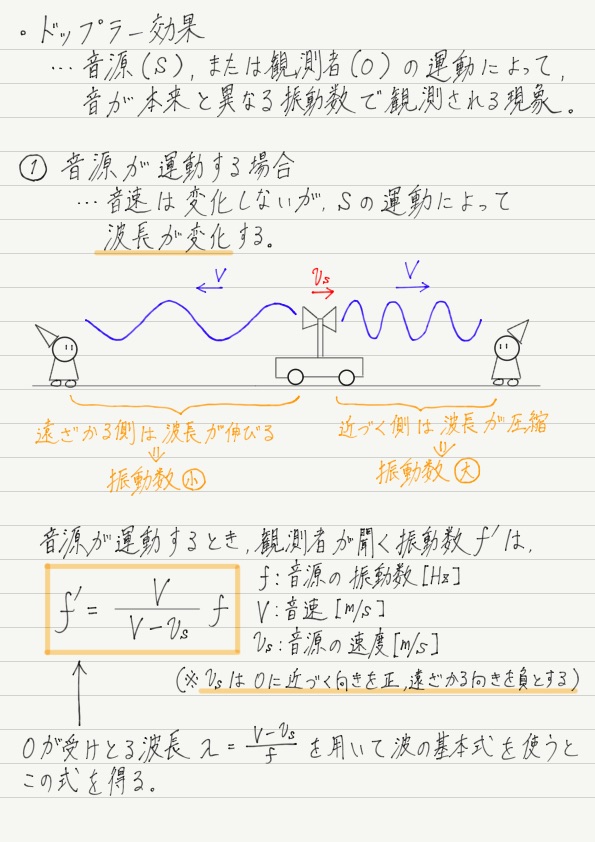 。ドップラー効果
… 音源(S)、または観測者(O)の運動によって、
音が本来と異なる振動数で観測される現象。
① 音源が運動する場合
… 音速は変化しないが、Sの運動によって
波長が変化する。
V vs V
遠ざかる側は波長が伸びる 近づく側は波長が圧縮
⇓ ⇓
振動数㊙小 振動数大
音源が運動するとき、観測者が聞く振動数 f' は、
f' = V / (V - vs) f
f:音源の振動数[Hz]
V:音速[m/s]
vs:音源の速度[m/s]
(※ vs は Oに近づく向きを正、遠ざかる向きを負とする)
Oが受けとる波長 λ = (V - vs) / f を用いて波の基本式を使うと
この式を得る。